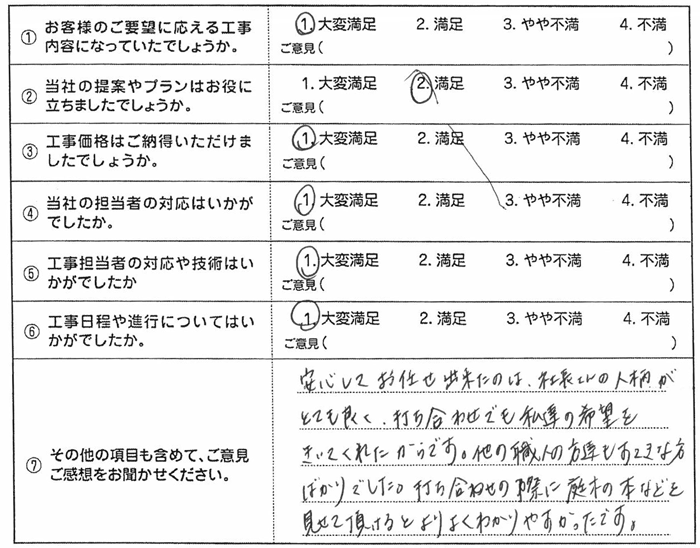 ① お客様のご要望に応える工事 1. 大変満足 2. 満足 3. やや不満 4. 不満
内容になっていたでしょうか。 ご意見( )
② 当社の提案やプランはお役に 1. 大変満足 2. 満足 3. やや不満 4. 不満
立ちましたでしょうか。 ご意見( )
③ 工事価格はご納得いただけま 1. 大変満足 2. 満足 3. やや不満 4. 不満
したでしょうか。 ご意見( )
④ 当社の担当者の対応はいかが 1. 大変満足 2. 満足 3. やや不満 4. 不満
でしたか。 ご意見( )
⑤ 工事担当者の対応や技術はい 1. 大変満足 2. 満足 3. やや不満 4. 不満
かがでしたか ご意見( )
⑥ 工事日程や進行についてはい 1. 大変満足 2. 満足 3. やや不満 4. 不満
かがでしたか。 ご意見( )
⑦ その他の項目も含めて、ご意見
ご感想をお聞かせください。
安心して お任せ出来たのは、社長さんの人柄が
とても良く、打ち合わせでも私達の希望を
きいてくれたからです。他の職人の方達もすてきな方
ばかりでした。打ち合わせの際に庭木の本などを
見せて頂けるとよりよくわかりやすかったです。